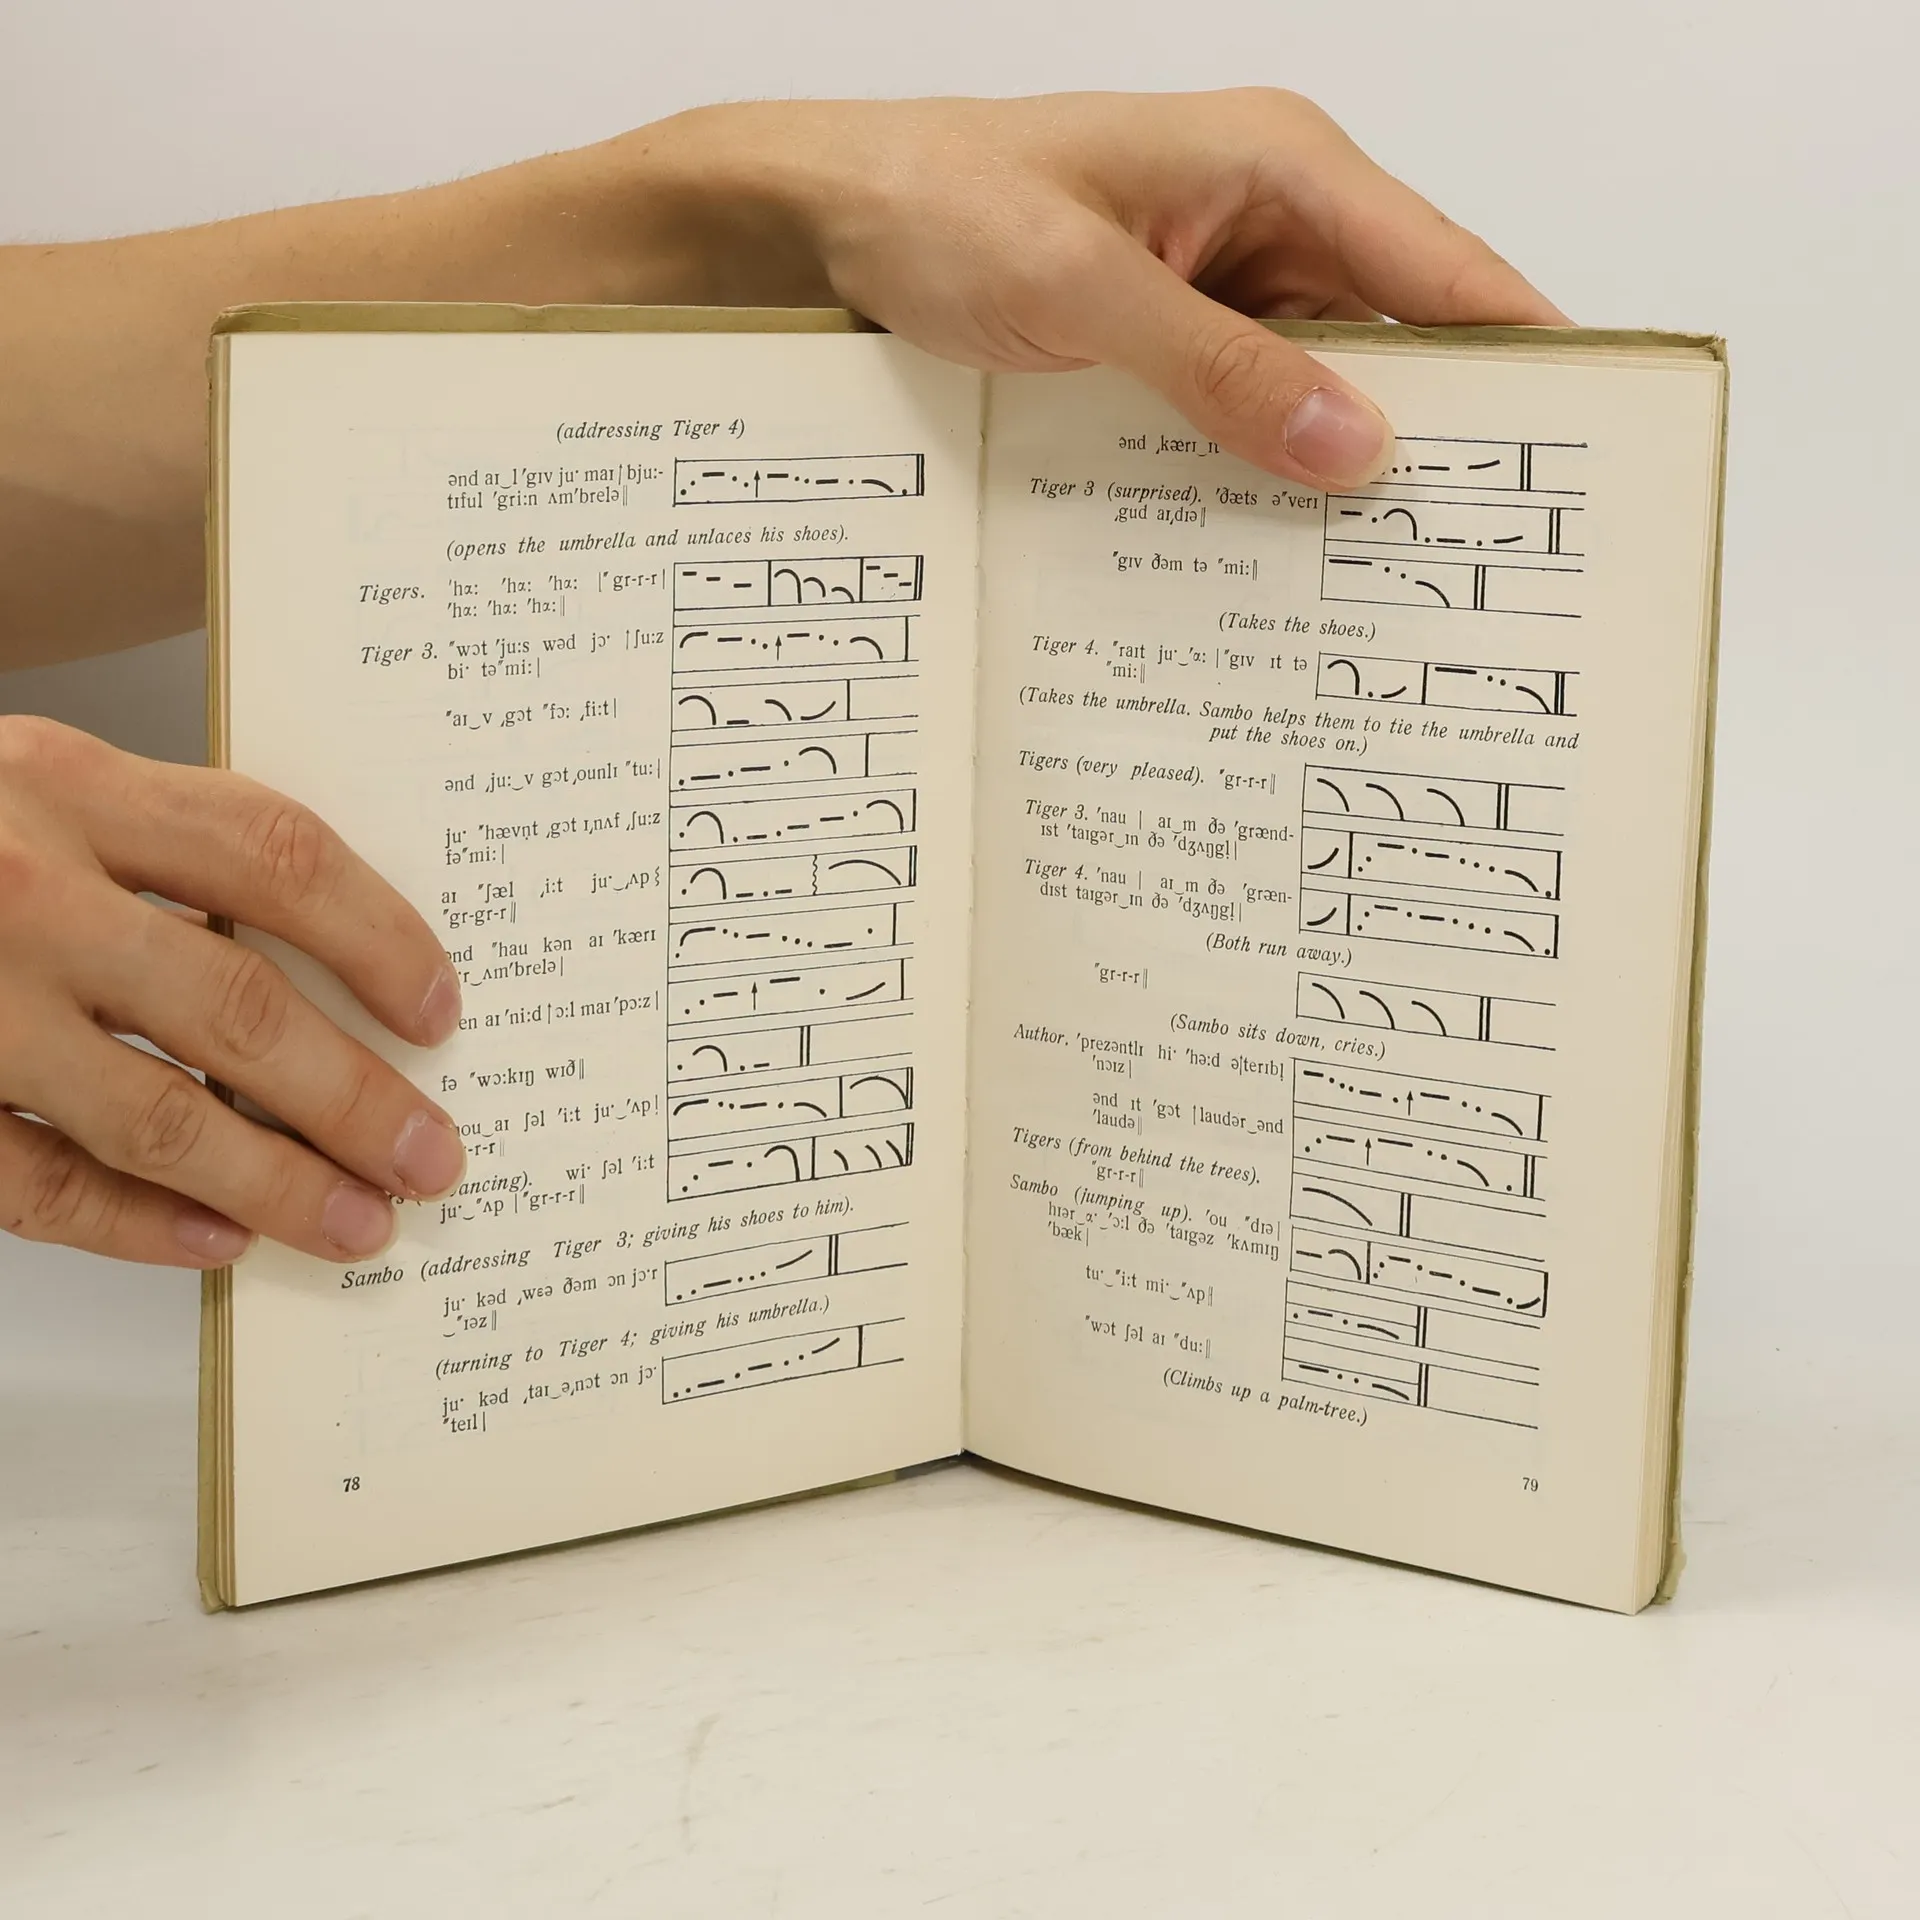 (addressing Tiger 4)
ənd aɪ‿l ′gɪv ju· maɪ↑bju:-
tɪful ′gri:n ʌm′brelə‖
(opens the umbrella and unlaces his shoes).
Tigers. ′hɑ: ′hɑ: ′hɑ: |″gr-r-r|
′hɑ: ′hɑ: ′hɑ:‖
Tiger 3. ″wɔt ′ju:s wəd jɔ· ↑ʃu:z
bi· tə″mi:|
″aɪ‿v ˌgɔt ″fɔ: ˌfi:t|
ənd ˌju:‿v gɔt ˌounlɪ ″tu:|
ju· ″hævṇt ˌgɔt ɪˌnʌf ˌʃu:z
fə″mi:|
aɪ ″ʃæl ˌi:t ju·‿ˌʌp⸾
″gr-gr-r‖
″hau kən aɪ ′kærɪ
r‿ʌm′brelə|
aɪ ′ni:d↑ɔ:l maɪ ′pɔ:z|
fə ″wɔ:kɪŋ wɪð‖
aɪ ʃəl ′i:t ju·‿′ʌp|
-r-r‖
ancing). wi· ʃəl ′i:t
ju·‿″ʌp |″gr-r-r‖
Sambo (addressing Tiger 3; giving his shoes to him).
ju· kəd ˌwɛə ðəm ɔn jɔ·r
‿″ɪəz‖
(turning to Tiger 4; giving his umbrella.)
ju· kəd ˌtaɪ‿əˌnɔt ɔn jɔ·
″teɪl|
78
ənd ˌkærɪ‿ɪt
Tiger 3 (surprised). ′ðæts ə″verɪ
ˌgud aɪˌdɪə‖
″gɪv ðəm tə ″mi:‖
(Takes the shoes.)
Tiger 4. ″raɪt ju·‿′ɑ: |″gɪv ɪt tə
″mi:‖
(Takes the umbrella. Sambo helps them to tie the umbrella and
put the shoes on.)
Tigers (very pleased). ″gr-r-r‖
Tiger 3. ′nau | aɪ‿m ðə ′grænd-
ɪst ′taɪgər‿ɪn ðə ′dʒʌŋgḷ|
Tiger 4. ′nau | aɪ‿m ðə ′græn-
dɪst taɪgər‿ɪn ðə ′dʒʌŋgḷ|
(Both run away.)
″gr-r-r‖
(Sambo sits down, cries.)
Author. ′prezəntlɪ hi· ′hə:d ə↑terɪbḷ
′nɔɪz|
ənd ɪt ′gɔt ↑laudər‿ənd
′laudə‖
Tigers (from behind the trees).
″gr-r-r‖
Sambo (jumping up). ′ou ″dɪə|
hɪər‿ɑ·‿′ɔ:l ðə ′taɪgəz ′kʌmɪŋ
′bæk|
tu·‿″i:t mi·‿″ʌp‖
″wɔt ʃəl aɪ ″du:‖
(Climbs up a palm-tree.)
79